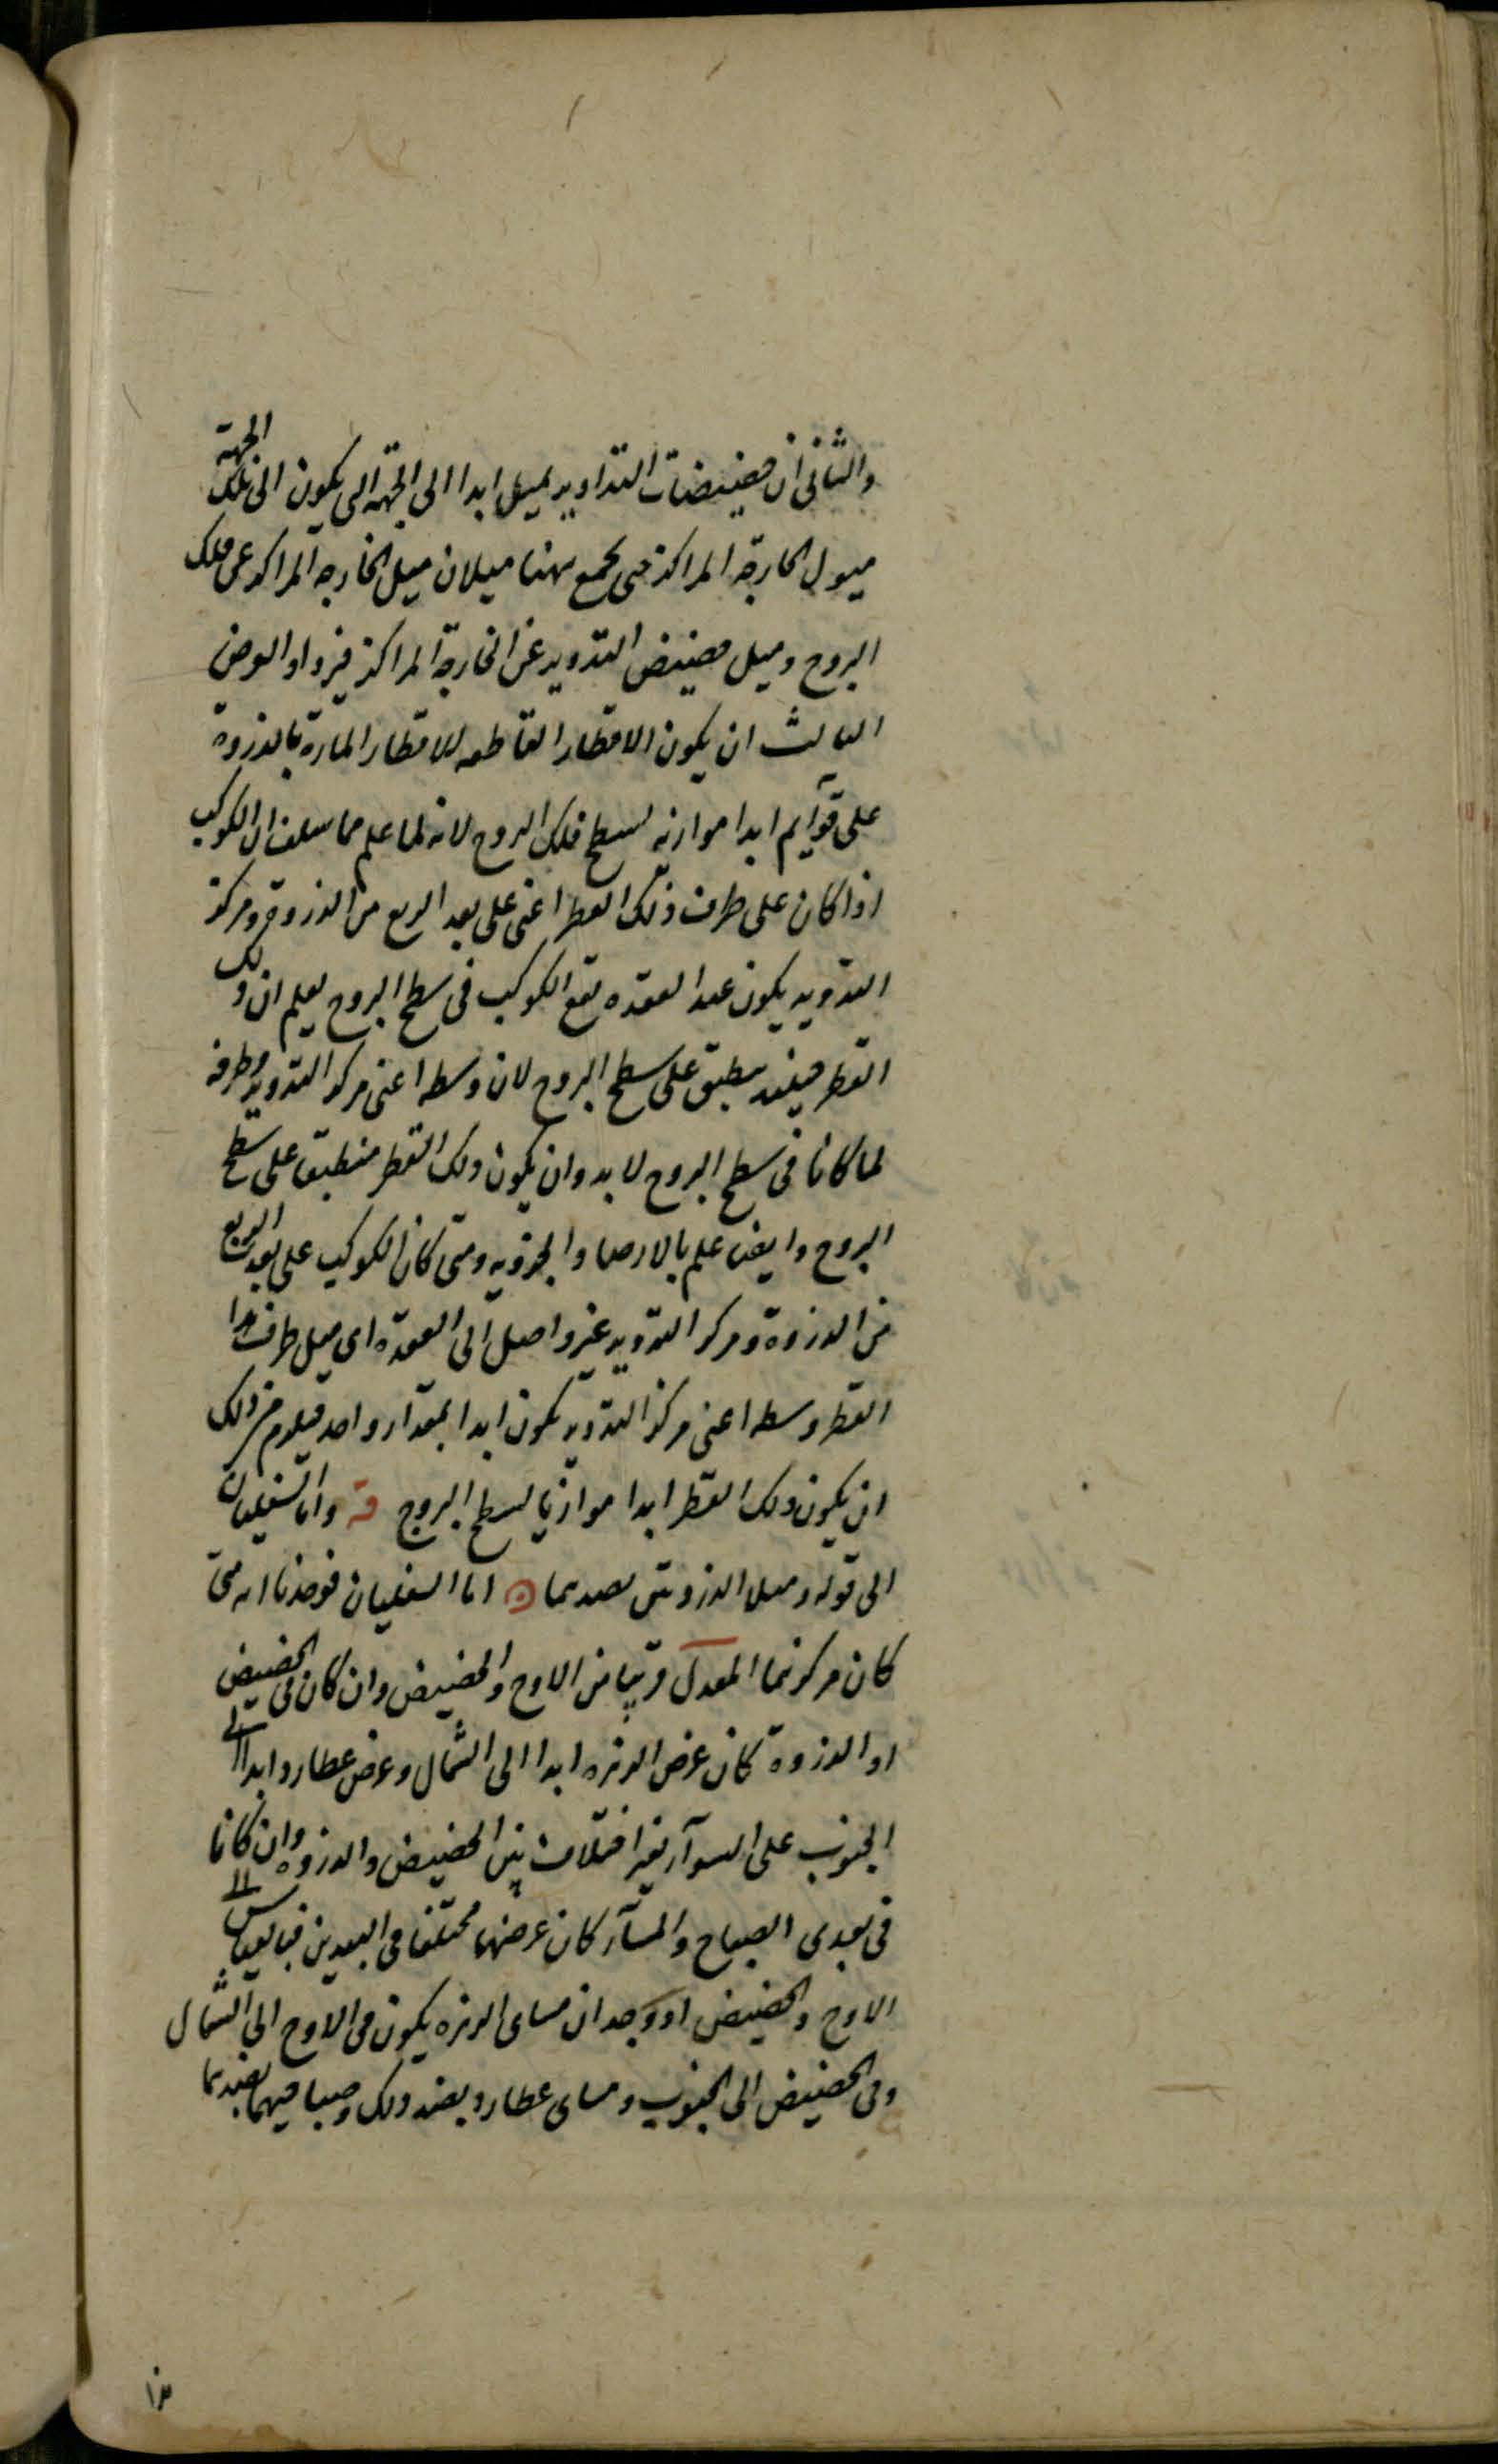 والثانى ان حضيضات التداوير يميل ابدا الى الجهة التى يكون الى تلك الجهة
ميول الخارجة المراكز حتى يجمع ههنا ميلان ميل الخارجة المراكز عن فلك
البروج وميل حضيض التدوير عن الخارجة المراكز فيزداد العرض
الثالث ان يكون الاقطار القاطعه للاقطار المارة بالذروة
على قوآيم ابدا موازية لسطح فلك البروج لانه لما علم مما سلف ان الكوكب
اذا كان على طرف ذلك القطر اعنى على بعد الربع من الذروة ومركز
التدوير يكون عند العقدة يقع الكوكب فى سطح البروج يعلم ان ذلك
القطر حينئذ ينطبق على سطح البروج لان وسطه اعنى مركز التدوير وطرفه
لما كانا فى سطح البروج لابد وان يكون ذلك القطر منطبق على سطح
البروج وايضا علم بالارصاد الجزويه ومتى كان الكوكب على بعد الربع
من الذروة ومركز التدوير غير واصل الى العقدة اى ميل طرف هذا
القطر وسطه اعنى مركز التدوير يكون ابدا بمقدار واحد فيلزم من ذلك
ان يكون ذلك القطر ابدا موازيا لسطح البروج قه واما السفليان
الى قوله وميل الذروتين بصدهما ۞ اما السفليان فوجدنا انه متى
كان مركزهما المعدل قريبا من الاوج والحضيض وان كان فى الحضيض
او الذروة كان عرض الزهره ابدا الى الشمال وعرض عطارد ابدا الى
الجنوب على السوآء بغير اختلاف بين الحضيض والذروه وان كانا
فى بعدى الصباح والمسآء كان عرضهما مختلفا فى البعدين فبالقياس الى
الاوج والحضيض او وجد ان مساى الزهره يكون فى الاوج الى الشمال
وفى الحضيض الى الجنوب ومساى عطارد بضد ذلك وصباحيهما بضدهما